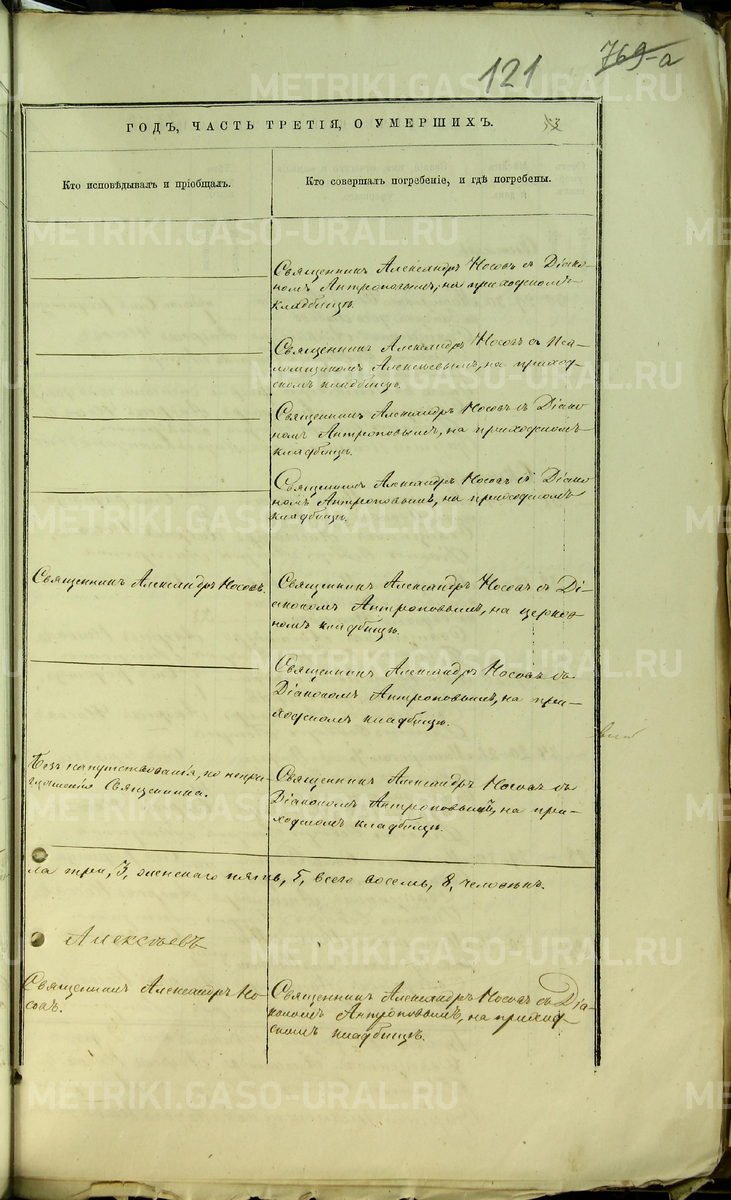 121
769-а
ГОДЪ, ЧАСТЬ ТРЕТІЯ, О УМЕРШИХЪ.
Кто исповѣдывалъ и пріобщалъ.
Кто совершалъ погребеніе, и гдѣ погребены.
Священникъ Александръ Носовъ съ Діако-
номъ Антроповымъ, на приходскомъ
кладбищѣ.
Священникъ Александръ Носовъ съ Пса-
ломщикомъ Алексѣевымъ, на приход-
скомъ кладбищѣ.
Священникъ Александръ Носовъ съ Діако
номъ Антроповымъ, на приходскомъ
кладбищѣ.
Священникъ Александръ Носовъ съ Діако
номъ Антроповымъ, на приходскомъ
кладбищѣ.
Священникъ Александръ Носовъ.
Священникъ Александръ Носовъ съ Ді-
акономъ Антроповымъ, на церков
номъ кладбищѣ.
Священникъ Александръ Носовъ съ
Діакономъ Антроповымъ, на при-
ходскомъ кладбищѣ.
Безъ напутствованія, по непри-
глашенія Священника.
Священникъ Александръ Носовъ съ
Діакономъ Антроповымъ, на при-
ходскомъ кладбищѣ.
ла три, 3, женскаго пять, 5, всего восемь, 8, человѣкъ.
Алексѣевъ
Священникъ Александръ Но-
совъ.
Священникъ Александръ Носовъ съ Діа-
кономъ Антроповымъ, на приход-
скомъ кладбищѣ.
METRIKI.GASO-URAL.RU